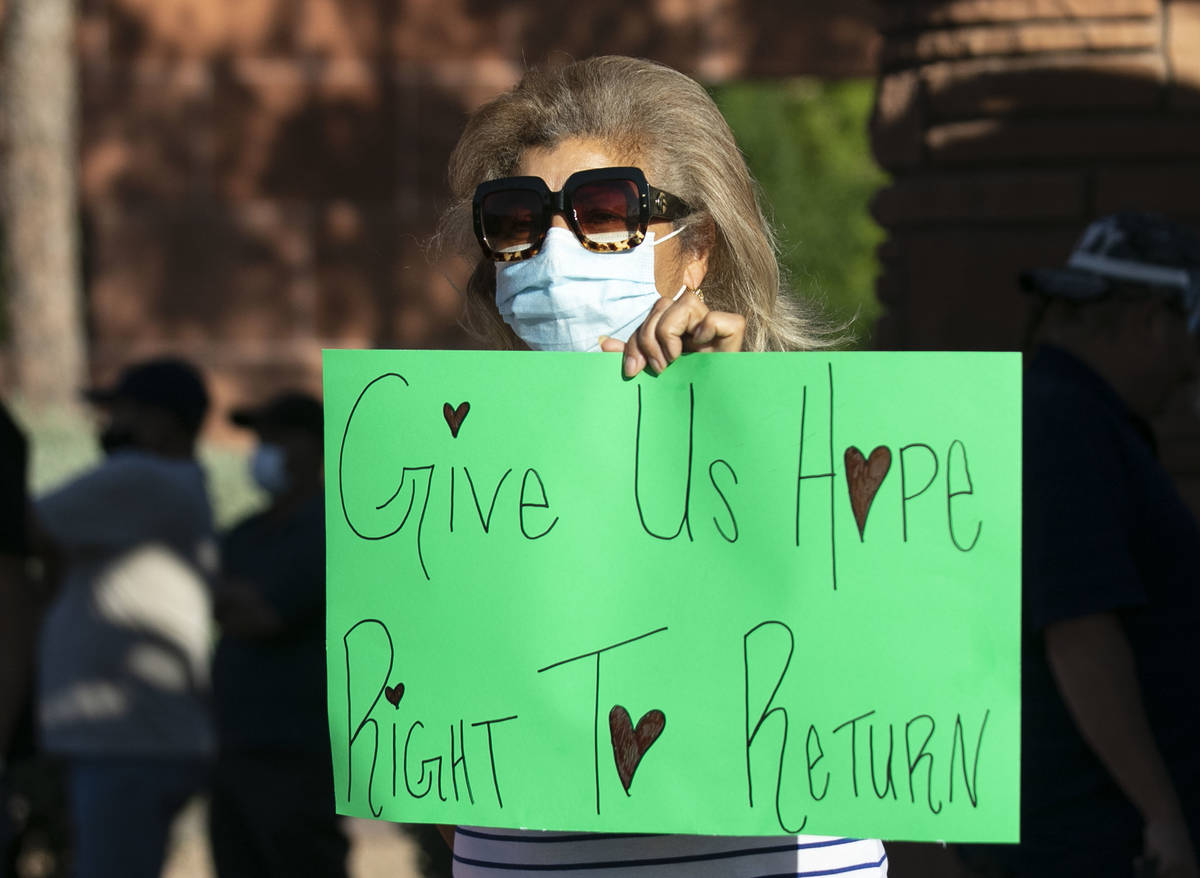 Give Us Hope
Right To Return